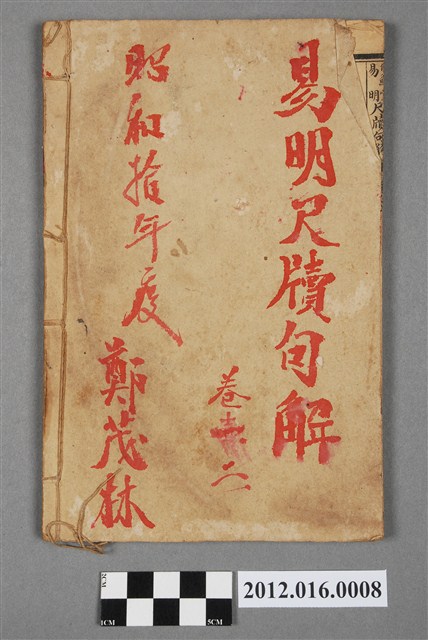 易明尺牘句解
卷二
昭和拾年度
鄭茂林
易明尺牘句
2012.016.0008
2CM
1CM
5CM